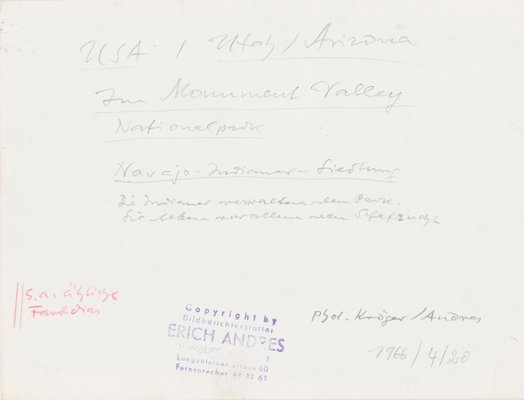 USA / Utah / Arizona
Im Monument Valley
Nationalpark
Navajo-Indianer-Siedlung
Die Indianer verwalten den Park.
Sie leben vor allem von Schafzucht
s. a. ähnliche
Farbdias
Copyright by
Bildberichterstatter
ERICH ANDRES
HAMBURG
Fernsprecher 43 31 61
Phot. Kröger/Andres
1766/4/20